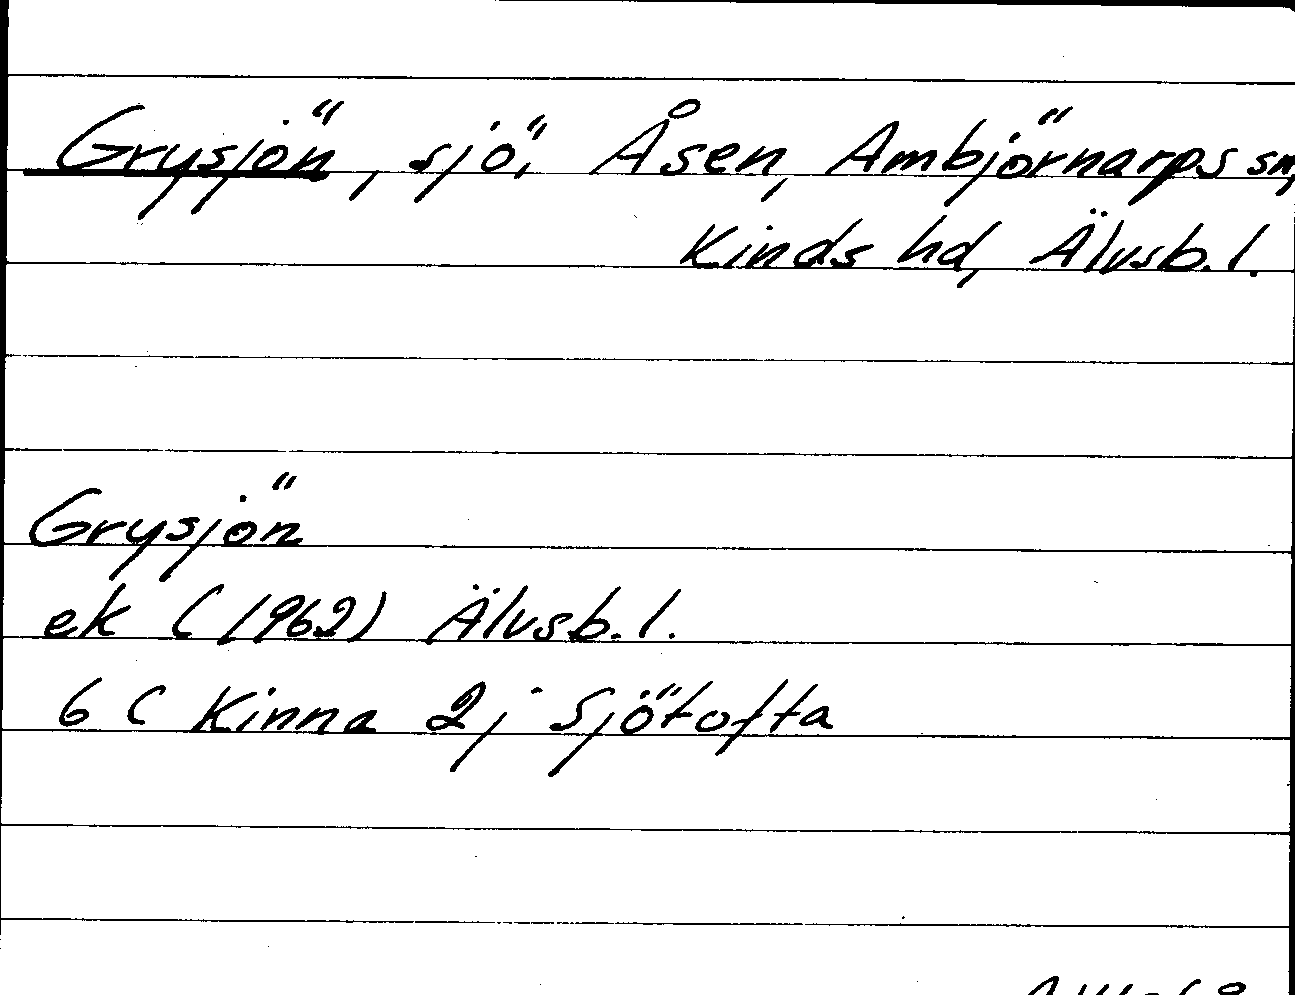 Grysjön, sjö, Åsen, Ambjörnarps sn,
Kinds hd, Älvsb. l.
Grysjön
ek (1962) Älvsb. l.
6 C Kinna 2j Sjötofta